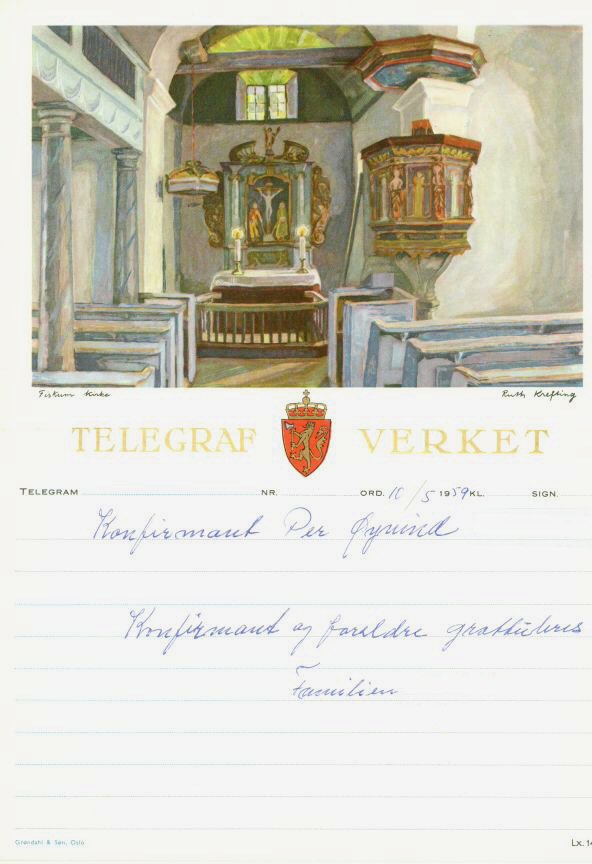 Fiskum Kirke
Ruth Krefting
TELEGRAF VERKET
TELEGRAM NR. ORD. 10/5 1959 KL. SIGN.
Konfirmant Per Øyvind
Konfirmant og foreldre grattuleres
Familien
Grøndahl & Søn, Oslo
Lx. 14